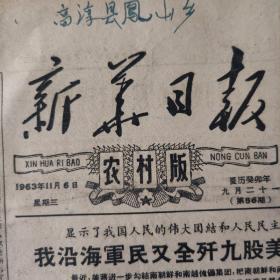 高淳县鳳山乡
新华日报
XIN HUA RI BAO
农村版
NONG CUN BAN
1963年11月6日
星期三
夏历癸卯年
九月二十一
(第56期)
显示了我国人民的伟大团结和人民民主
我沿海軍民又全歼九股美